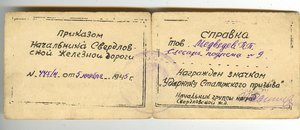 Приказом
Начальника Свердлов
ской железной дороги
от 5 ноября 1945 г
СПРАВКА
тов. Медведев
Слесарь
Награжден значком
"Ударнику Сталинского призыва"
Начальник группы
Свердловской ж.д.